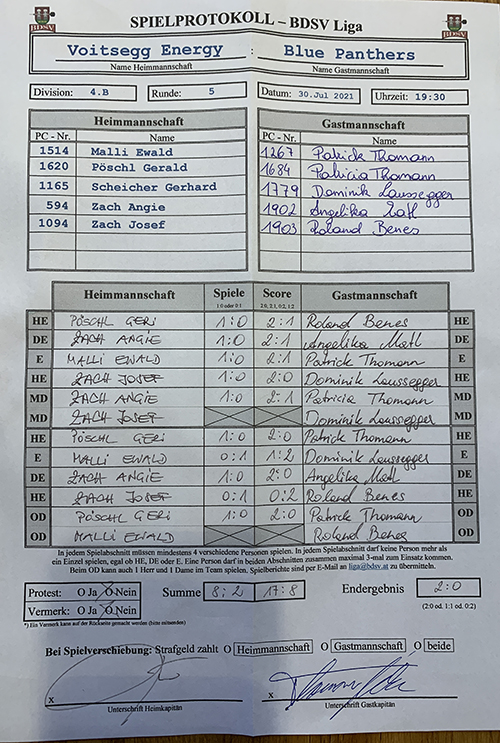 BDSV
SPIELPROTOKOLL – BDSV Liga
BDSV
Voitsegg Energy : Blue Panthers
Name Heimmannschaft Name Gastmannschaft
Division: 4.B Runde: 5 Datum: 30.Jul 2021 Uhrzeit: 19:30
Heimmannschaft Gastmannschaft
PC - Nr. Name PC - Nr. Name
1514 Malli Ewald 1267 Patrick Thomann
1620 Pöschl Gerald 1684 Patricia Thomann
1165 Scheicher Gerhard 1779 Dominik Laussegger
594 Zach Angie 1902 Angelika Matl
1094 Zach Josef 1903 Roland Benes
Heimmannschaft Spiele Score Gastmannschaft
1:0 oder 0:1 2:0, 2:1, 0:2, 1:2
HE PÖSCHL GERI 1:0 2:1 Roland Benes HE
DE ZACH ANGIE 1:0 2:1 Angelika Matl DE
E MALLI EWALD 1:0 2:1 Patrick Thomann E
HE ZACH JOSEF 1:0 2:0 Dominik Laussegger HE
MD ZACH ANGIE 1:0 2:1 Patricia Thomann MD
MD ZACH JOSEF Dominik Laussegger MD
HE PÖSCHL GERI 1:0 2:0 Patrick Thomann HE
E MALLI EWALD 0:1 1:2 Dominik Laussegger E
DE ZACH ANGIE 1:0 2:0 Angelika Matl DE
HE ZACH JOSEF 0:1 0:2 Roland Benes HE
OD PÖSCHL GERI 1:0 2:0 Patrick Thomann OD
OD MALLI EWALD Roland Benes OD
In jedem Spielabschnitt müssen mindestens 4 verschiedene Personen spielen. In jedem Spielabschnitt darf keine Person mehr als
ein Einzel spielen, egal ob HE, DE oder E. Eine Person darf in beiden Abschnitten zusammen maximal 3-mal zum Einsatz kommen.
Beim OD kann auch 1 Herr und 1 Dame im Team spielen. Spielberichte sind per E-Mail an liga@bdsv.at zu übermitteln.
Protest: O Ja O Nein Summe 8:2 17:8 Endergebnis 2:0
Vermerk: O Ja O Nein (2:0 od. 1:1 od. 0:2)
*) Ein Vermerk kann auf der Rückseite gemacht werden (bitte mitsenden)
Bei Spielverschiebung: Strafgeld zahlt O Heimmannschaft O Gastmannschaft O beide
x x
Unterschrift Heimkapitän Unterschrift Gastkapitän